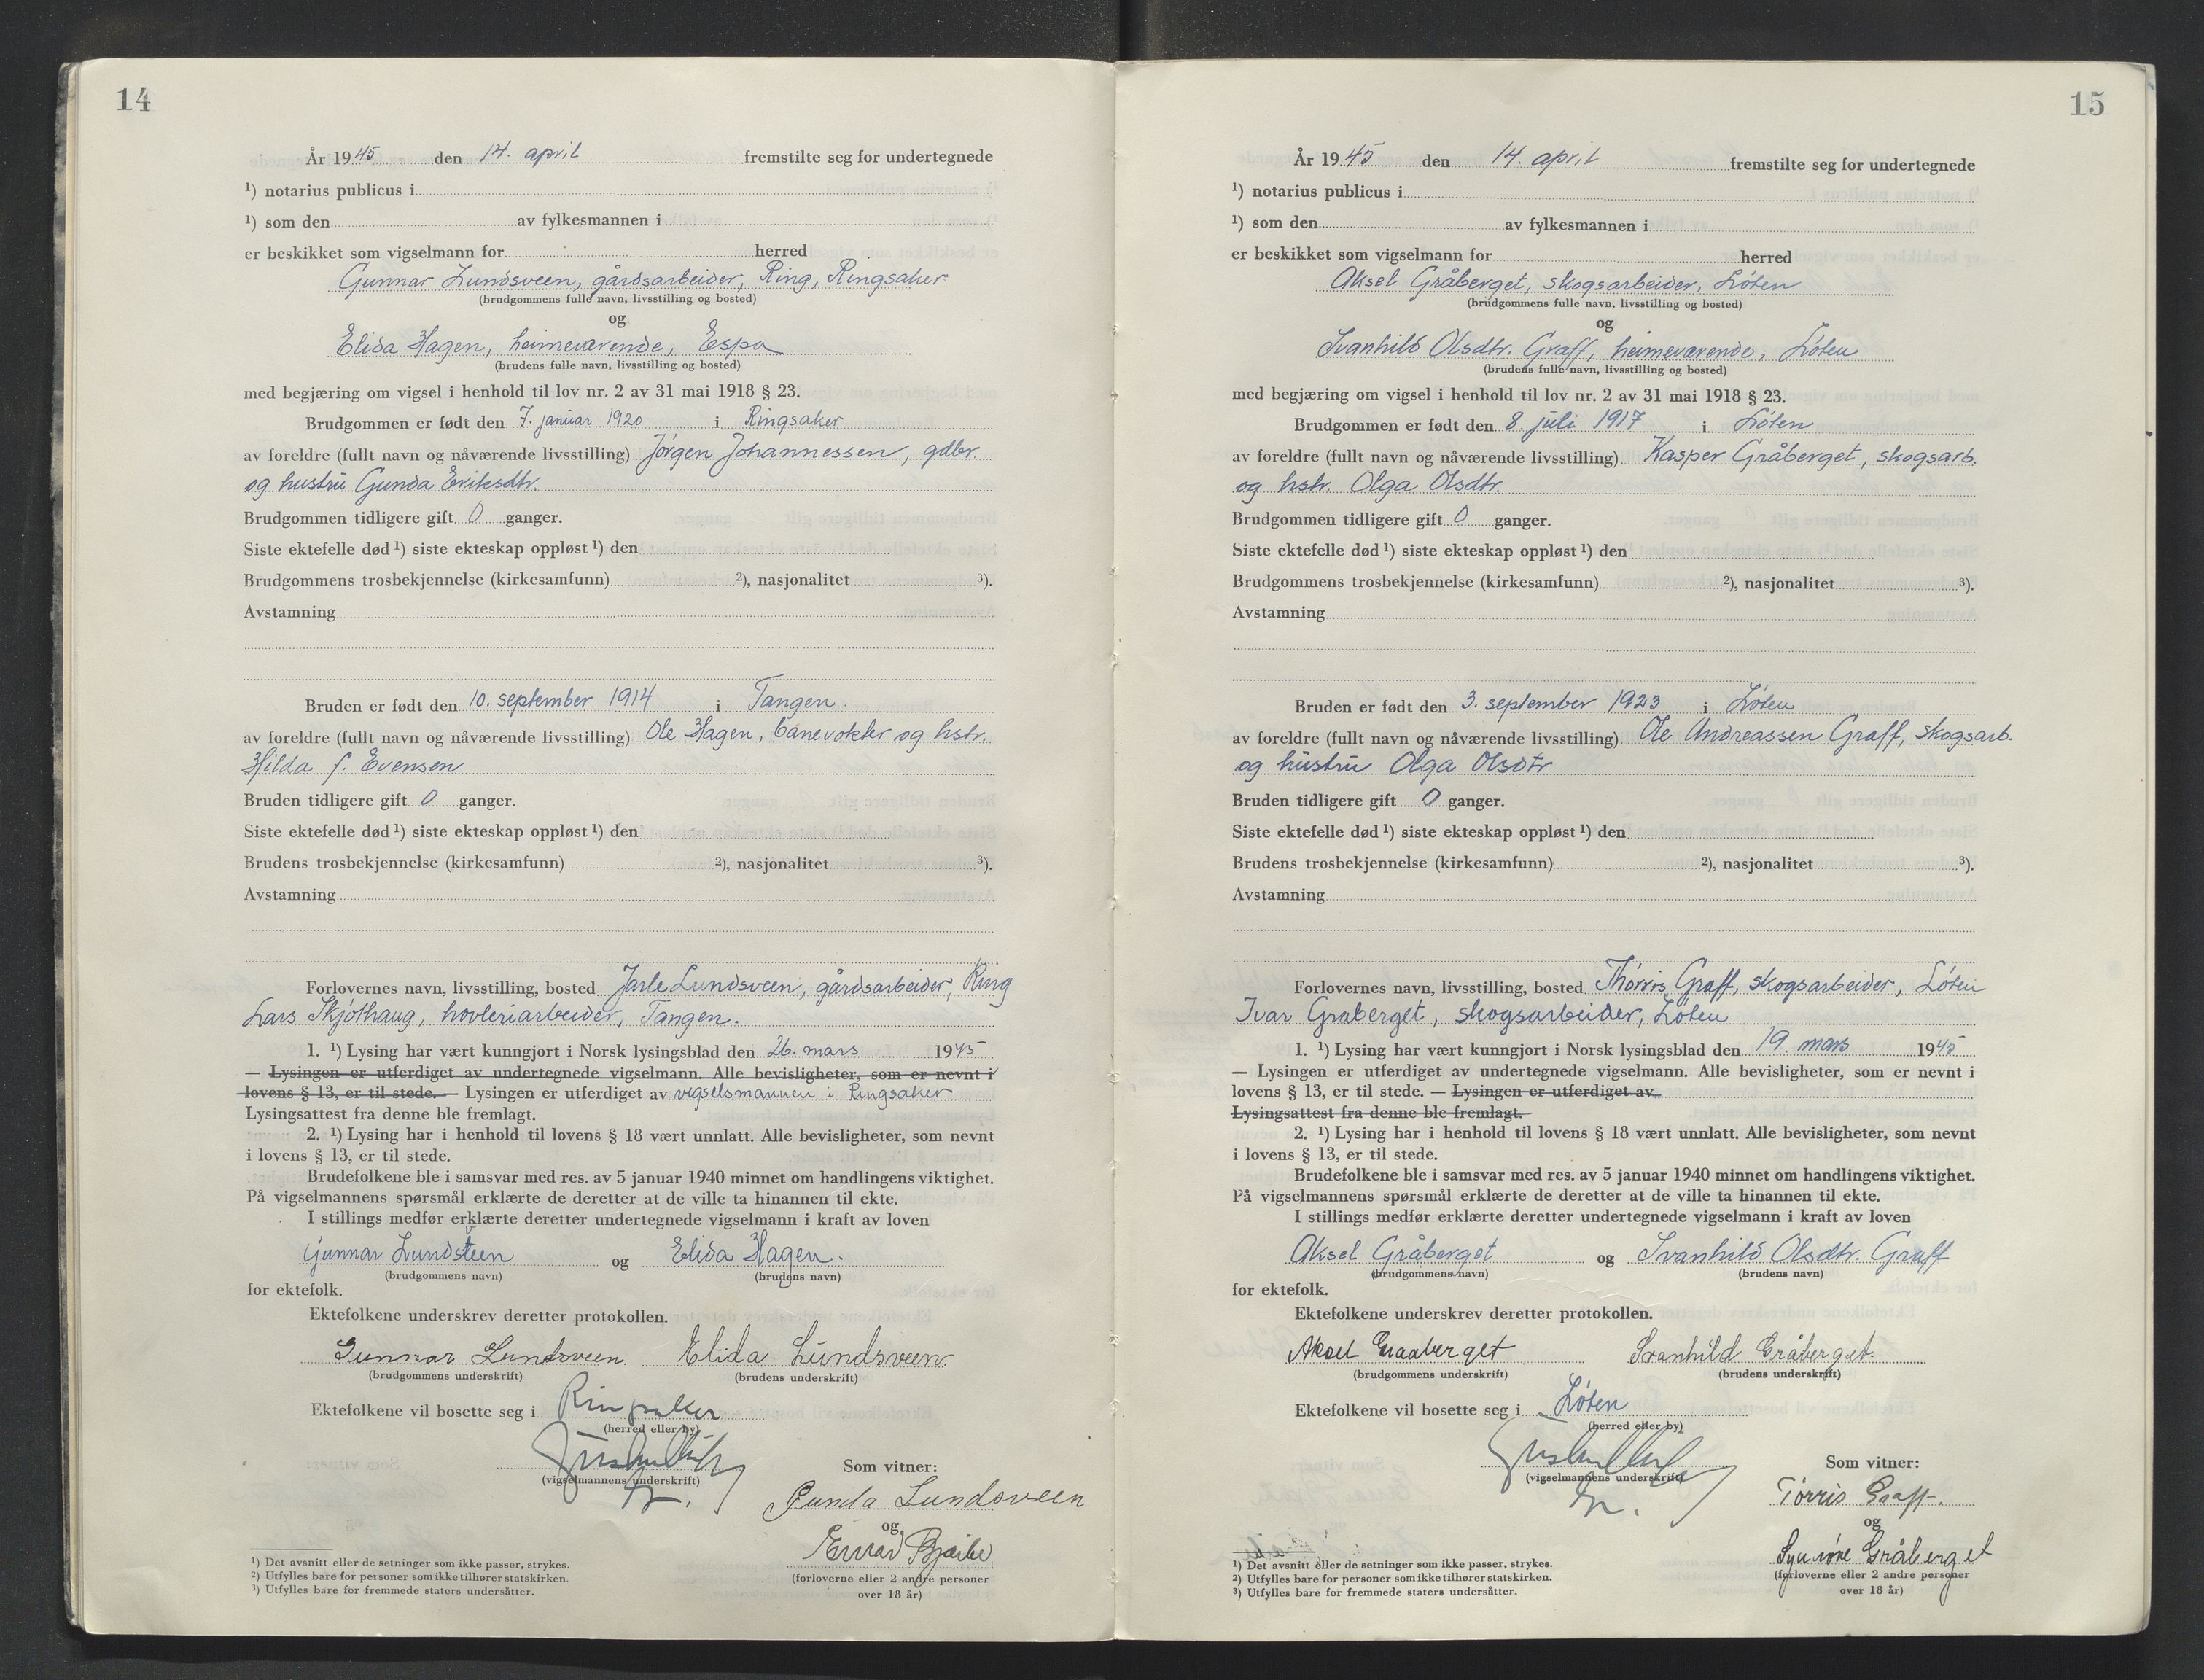 14
År 1945 den 14. april fremstilte seg for undertegnede
¹) notarius publicus i
¹) som den av fylkesmannen i
er beskikket som vigselmann for herred
Gunnar Lundsveen, gårdsarbeider, Ring, Ringsaker
(brudgommens fulle navn, livsstilling og bosted)
og
Elida Hagen, heimeværende, Espa
(brudens fulle navn, livsstilling og bosted)
med begjæring om vigsel i henhold til lov nr. 2 av 31 mai 1918 § 23.
Brudgommen er født den 7. januar 1920 i Ringsaker
av foreldre (fullt navn og nåværende livsstilling) Jørgen Johannessen, gdbr.
og hustru Gunda Eriksdtr.
Brudgommen tidligere gift 0 ganger.
Siste ektefelle død ¹) siste ekteskap oppløst ¹) den
Brudgommens trosbekjennelse (kirkesamfunn) ²), nasjonalitet ³).
Avstamning
Bruden er født den 10. september 1914 i Tangen.
av foreldre (fullt navn og nåværende livsstilling) Ole Hagen, banevokter og hstr.
Hilda f. Evensen
Bruden tidligere gift 0 ganger.
Siste ektefelle død ¹) siste ekteskap oppløst ¹) den
Brudens trosbekjennelse (kirkesamfunn) ²), nasjonalitet ³).
Avstamning
Forlovernes navn, livsstilling, bosted Jarle Lundsveen, gårdsarbeider, Ring
Lars Skjøthaug, høvleriarbeider, Tangen.
1. ¹) Lysing har vært kunngjort i Norsk lysingsblad den 26. mars 1945
— Lysingen er utferdiget av undertegnede vigselmann. Alle bevisligheter, som er nevnt i
lovens § 13, er til stede. — Lysingen er utferdiget av vigselsmannen i Ringsaker
Lysingsattest fra denne ble fremlagt.
2. ¹) Lysing har i henhold til lovens § 18 vært unnlatt. Alle bevisligheter, som nevnt
i lovens § 13, er til stede.
Brudefolkene ble i samsvar med res. av 5 januar 1940 minnet om handlingens viktighet.
På vigselmannens spørsmål erklærte de deretter at de ville ta hinannen til ekte.
I stillings medfør erklærte deretter undertegnede vigselmann i kraft av loven
Gunnar Lundsveen og Elida Hagen.
(brudgommens navn) (brudens navn)
for ektefolk.
Ektefolkene underskrev deretter protokollen.
Gunnar Lundsveen. Elida Lundsveen.
(brudgommens underskrift) (brudens underskrift)
Ektefolkene vil bosette seg i Ringsaker
(herred eller by)
(vigselmannens underskrift)
Som vitner:
Gunda Lundsveen
og
(forloverne eller 2 andre personer
over 18 år)
¹) Det avsnitt eller de setninger som ikke passer, strykes.
²) Utfylles bare for personer som ikke tilhører statskirken.
³) Utfylles bare for fremmede staters undersåtter.
15
År 1945 den 14. april fremstilte seg for undertegnede
¹) notarius publicus i
¹) som den av fylkesmannen i
er beskikket som vigselmann for herred
Aksel Gråberget, skogsarbeider, Løten
(brudgommens fulle navn, livsstilling og bosted)
og
Svanhild Olsdtr. Graff, heimeværende, Løten
(brudens fulle navn, livsstilling og bosted)
med begjæring om vigsel i henhold til lov nr. 2 av 31 mai 1918 § 23.
Brudgommen er født den 8. juli 1917 i Løten
av foreldre (fullt navn og nåværende livsstilling) Kasper Gråberget, skogsarb.
og hstr. Olga Olsdtr.
Brudgommen tidligere gift 0 ganger.
Siste ektefelle død ¹) siste ekteskap oppløst ¹) den
Brudgommens trosbekjennelse (kirkesamfunn) ²), nasjonalitet ³).
Avstamning
Bruden er født den 3. september 1923 i Løten
av foreldre (fullt navn og nåværende livsstilling) Ole Andreassen Graff, skogsarb.
og hustru Olga Olsdtr
Bruden tidligere gift 0 ganger.
Siste ektefelle død ¹) siste ekteskap oppløst ¹) den
Brudens trosbekjennelse (kirkesamfunn) ²), nasjonalitet ³).
Avstamning
Forlovernes navn, livsstilling, bosted Thorris Graff, skogsarbeider, Løten
Ivar Graberget, skogsarbeider, Løten
1. ¹) Lysing har vært kunngjort i Norsk lysingsblad den 19. mars 1945
— Lysingen er utferdiget av undertegnede vigselmann. Alle bevisligheter, som er nevnt i
lovens § 13, er til stede. — Lysingen er utferdiget av
Lysingsattest fra denne ble fremlagt.
2. ¹) Lysing har i henhold til lovens § 18 vært unnlatt. Alle bevisligheter, som nevnt
i lovens § 13, er til stede.
Brudefolkene ble i samsvar med res. av 5 januar 1940 minnet om handlingens viktighet.
På vigselmannens spørsmål erklærte de deretter at de ville ta hinannen til ekte.
I stillings medfør erklærte deretter undertegnede vigselmann i kraft av loven
Aksel Gråberget og Svanhild Olsdtr. Graff
(brudgommens navn) (brudens navn)
for ektefolk.
Ektefolkene underskrev deretter protokollen.
Aksel Graaberget Svanhild Gråberget.
(brudgommens underskrift) (brudens underskrift)
Ektefolkene vil bosette seg i Løten
(herred eller by)
(vigselmannens underskrift)
Som vitner:
Tørris Graff.
og
Synnøve Gråberget
(forloverne eller 2 andre personer
over 18 år)
¹) Det avsnitt eller de setninger som ikke passer, strykes.
²) Utfylles bare for personer som ikke tilhører statskirken.
³) Utfylles bare for fremmede staters undersåtter.